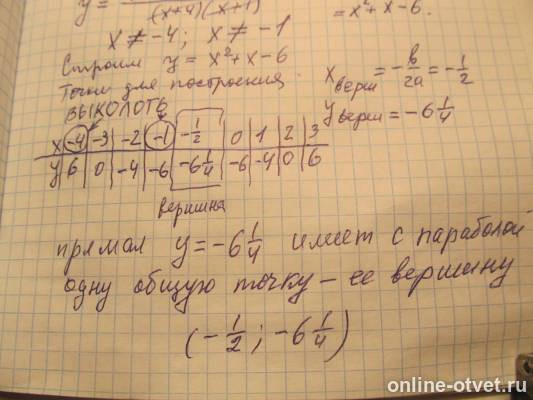 y =
(x+4)(x+1)
= x² + x - 6.
x ≠ -4; x ≠ -1
Строим y = x² + x - 6
Точки для построения.
x верш = -в/2a = -1/2
y верш = -6 1/4
ВЫКОЛОТЬ
x | -4 | -3 | -2 | -1 | -1/2 | 0 | 1 | 2 | 3
y | 6 | 0 | -4 | -6 | -6 1/4 | -6 | -4 | 0 | 6
вершина
прямая y = -6 1/4 имеет с параболой
одну общую точку - ее вершину
(-1/2; -6 1/4)
online-otvet.ru